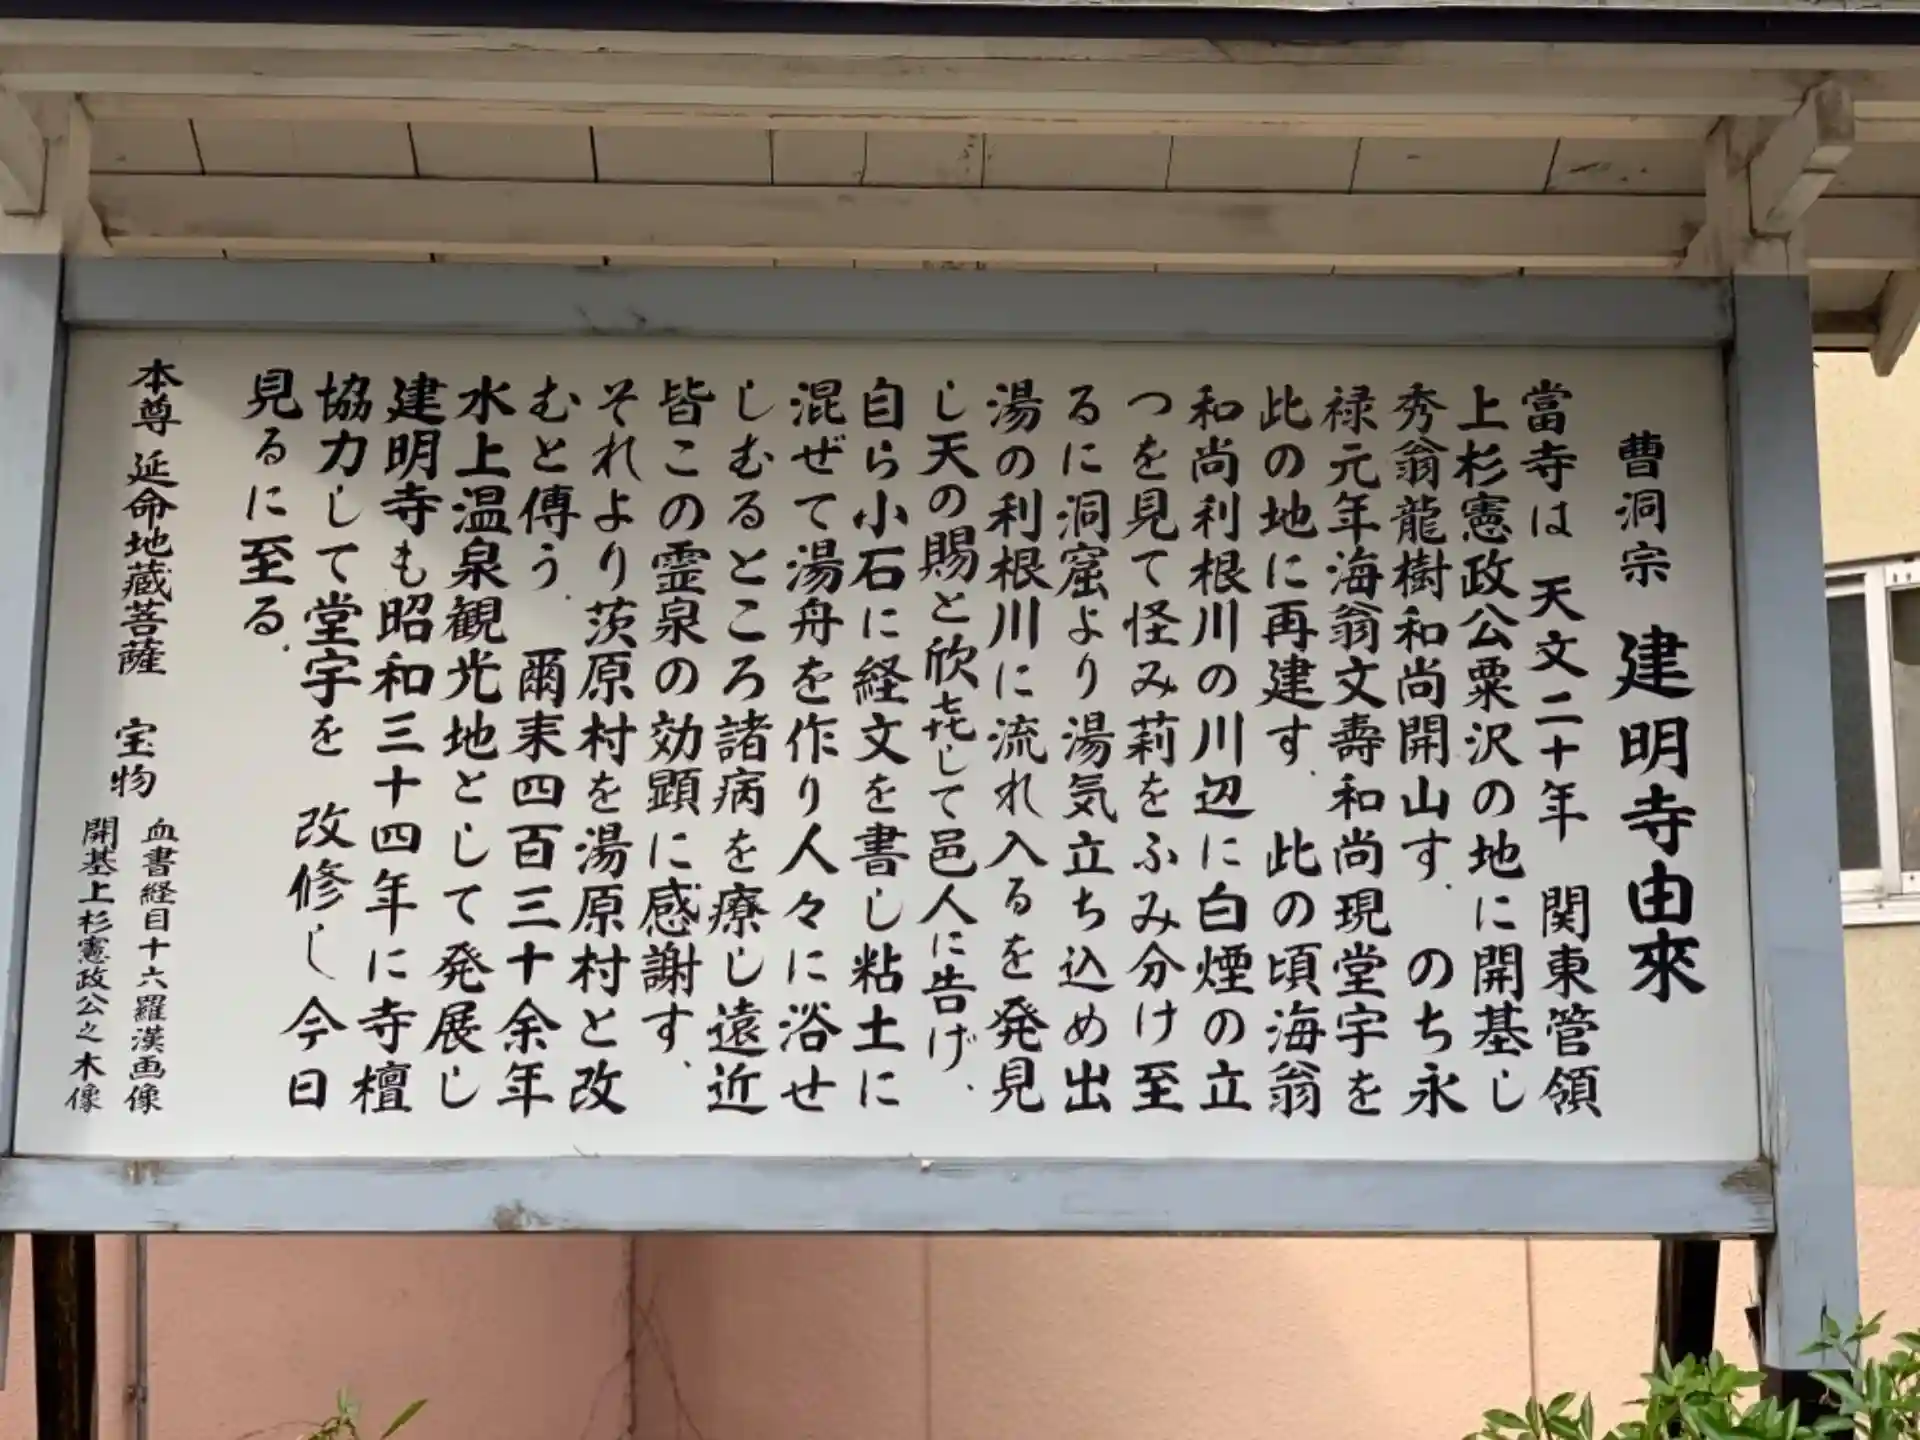 曹洞宗 建明寺由來
當寺は 天文二十年 関東管領
上杉憲政公粟沢の地に開基し
秀翁龍樹和尚開山す. のち永
禄元年海翁文壽和尚現堂宇を
此の地に再建す. 此の頃海翁
和尚利根川の川辺に白煙の立
つを見て怪み莉をふみ分け至
るに洞窟より湯気立ち込め出
湯の利根川に流れ入るを発見
し天の賜と欣㐂して邑人に告げ.
自ら小石に経文を書し粘土に
混ぜて湯舟を作り人々に浴せ
しむるところ諸病を療し遠近
皆この霊泉の効顕に感謝す.
それより茨原村を湯原村と改
むと傳う. 爾来四百三十余年
水上温泉観光地として発展し
建明寺も昭和三十四年に寺檀
協力して堂宇を 改修し今日
見るに至る.
本尊 延命地蔵菩薩 宝物
血書経目十六羅漢画像
開基上杉憲政公之木像